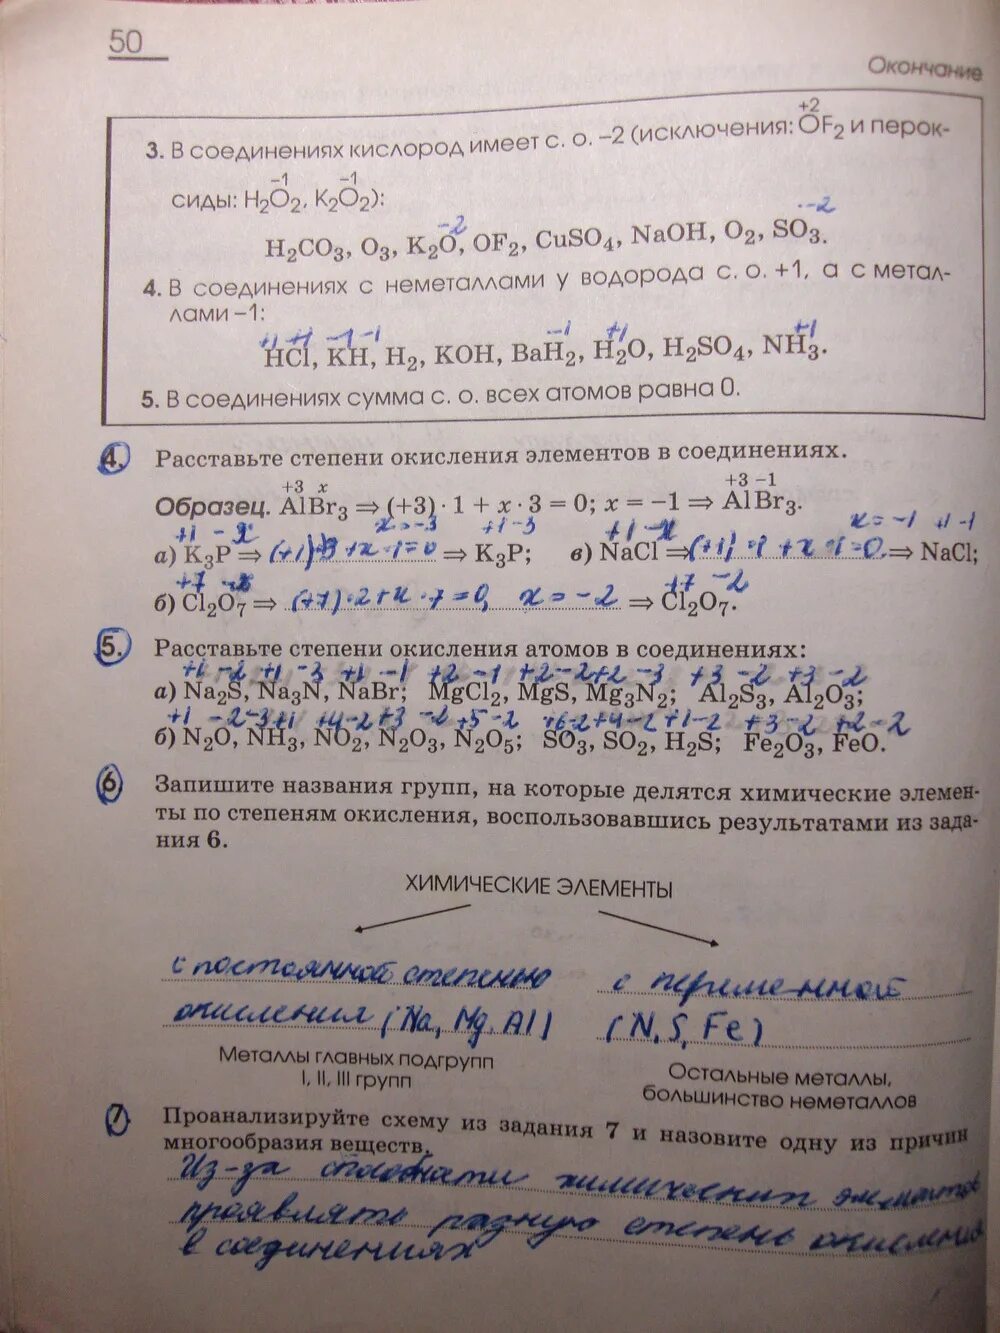 50
Окончание
+2
3. В соединениях кислород имеет с. о. –2 (исключения: OF₂ и перок-
–1 –1
сиды: H₂O₂, K₂O₂):
-2 -2
H₂CO₃, O₃, K₂O, OF₂, CuSO₄, NaOH, O₂, SO₃.
4. В соединениях с неметаллами у водорода с. о. +1, а с метал-
лами –1:
+1 +1 -1 -1 -1 +1 +1
HCl, KH, H₂, KOH, BaH₂, H₂O, H₂SO₄, NH₃.
5. В соединениях сумма с. о. всех атомов равна 0.
4. Расставьте степени окисления элементов в соединениях.
+3 x +3 –1
Образец. AlBr₃ ⇒ (+3) · 1 + x · 3 = 0; x = –1 ⇒ AlBr₃.
+1 -x x=-3 +1-3 +1 -x x=-1 +1-1
а) K₃P ⇒ (+1)·3+x·1=0 ⇒ K₃P; в) NaCl ⇒ (+1)·1+x·1=0 ⇒ NaCl;
+7 -x +7 -2
б) Cl₂O₇ ⇒ (+7)·2+x·7=0, x=-2 ⇒ Cl₂O₇.
5. Расставьте степени окисления атомов в соединениях:
+1 -2 +1 -3 +1 -1 +2 -1 +2-2+2 -3 +3 -2 +3 -2
а) Na₂S, Na₃N, NaBr; MgCl₂, MgS, Mg₃N₂; Al₂S₃, Al₂O₃;
+1 -2-3+1 +4-2+3 -2 +5-2 +6-2+4-2+1-2 +3-2 +2-2
б) N₂O, NH₃, NO₂, N₂O₃, N₂O₅; SO₃, SO₂, H₂S; Fe₂O₃, FeO.
6 Запишите названия групп, на которые делятся химические элемен-
ты по степеням окисления, воспользовавшись результатами из зада-
ния 6.
ХИМИЧЕСКИЕ ЭЛЕМЕНТЫ
с постоянной степенью
окисления (Na, Mg, Al)
Металлы главных подгрупп
I, II, III групп
с переменной
(N, S, Fe)
Остальные металлы,
большинство неметаллов
7 Проанализируйте схему из задания 7 и назовите одну из причин
многообразия веществ.
Из-за способности химических элементов
проявлять разную степень окисления
в соединениях